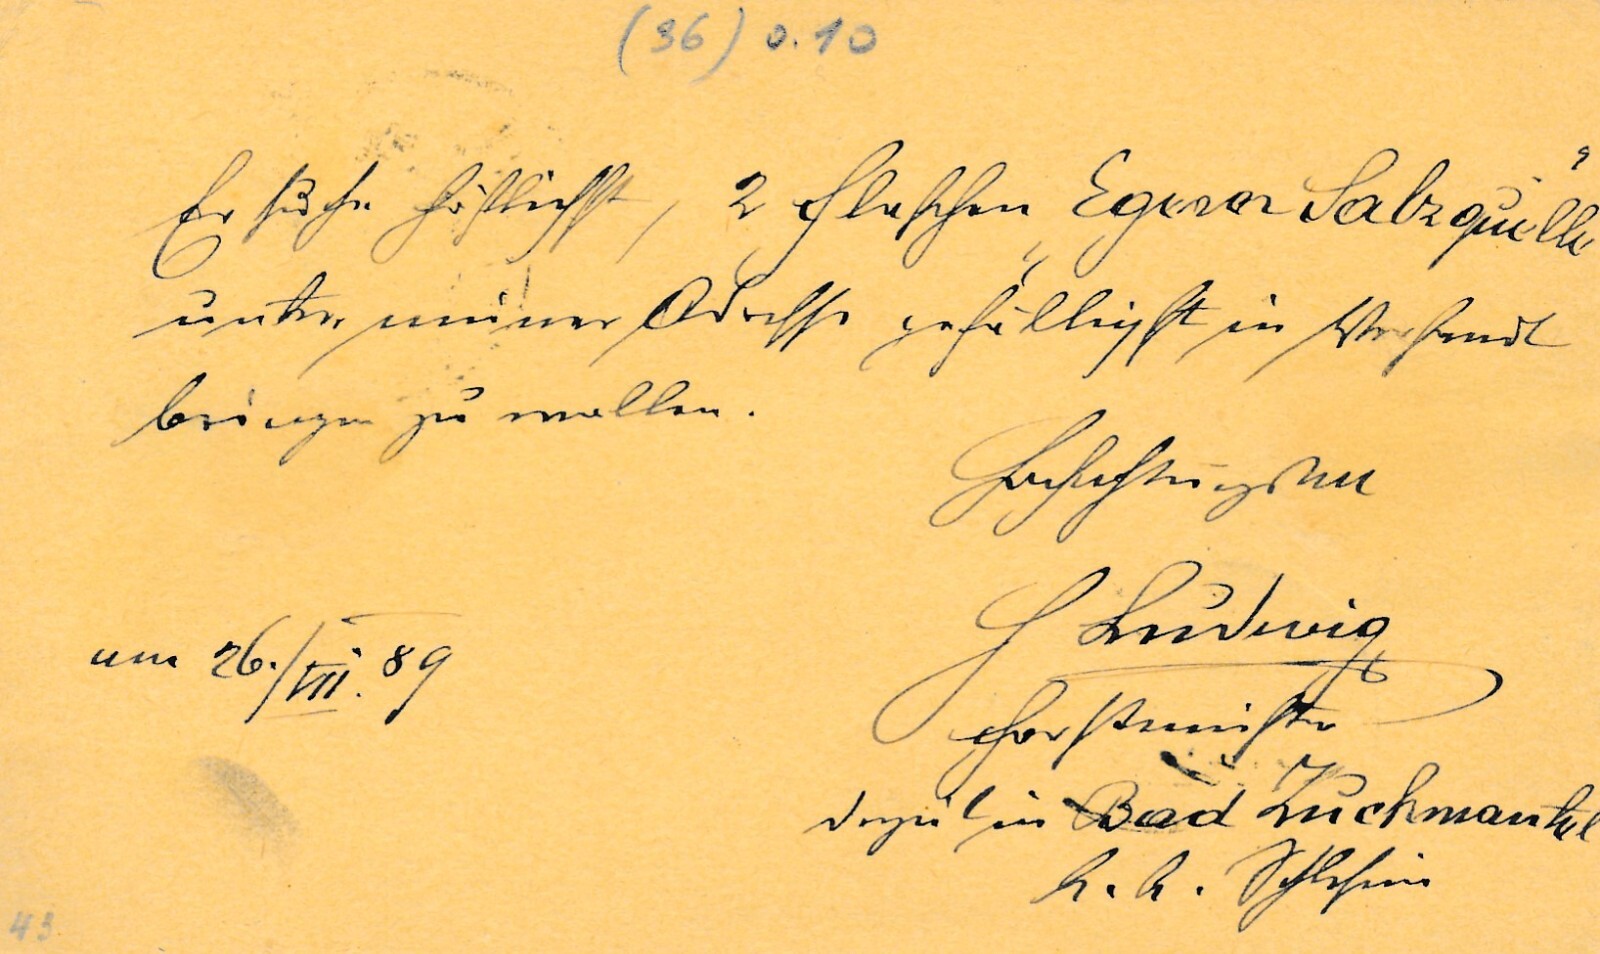 (36) 0.10
Ersuche höflichst, 2 Flaschen „Egerer Salzquelle“
unter meiner Adresse gefälligst in Versandt
bringen zu wollen.
Hochachtungsvoll
Ludwig
am 26./VII. 89
Forstmeister
derzeit in Bad Zuckmantel
k. k. Schlesien
43